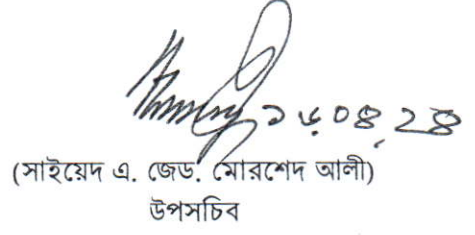 ১৬.০৪.২৪
(সাইয়েদ এ. জেড. মোরশেদ আলী)
উপসচিব